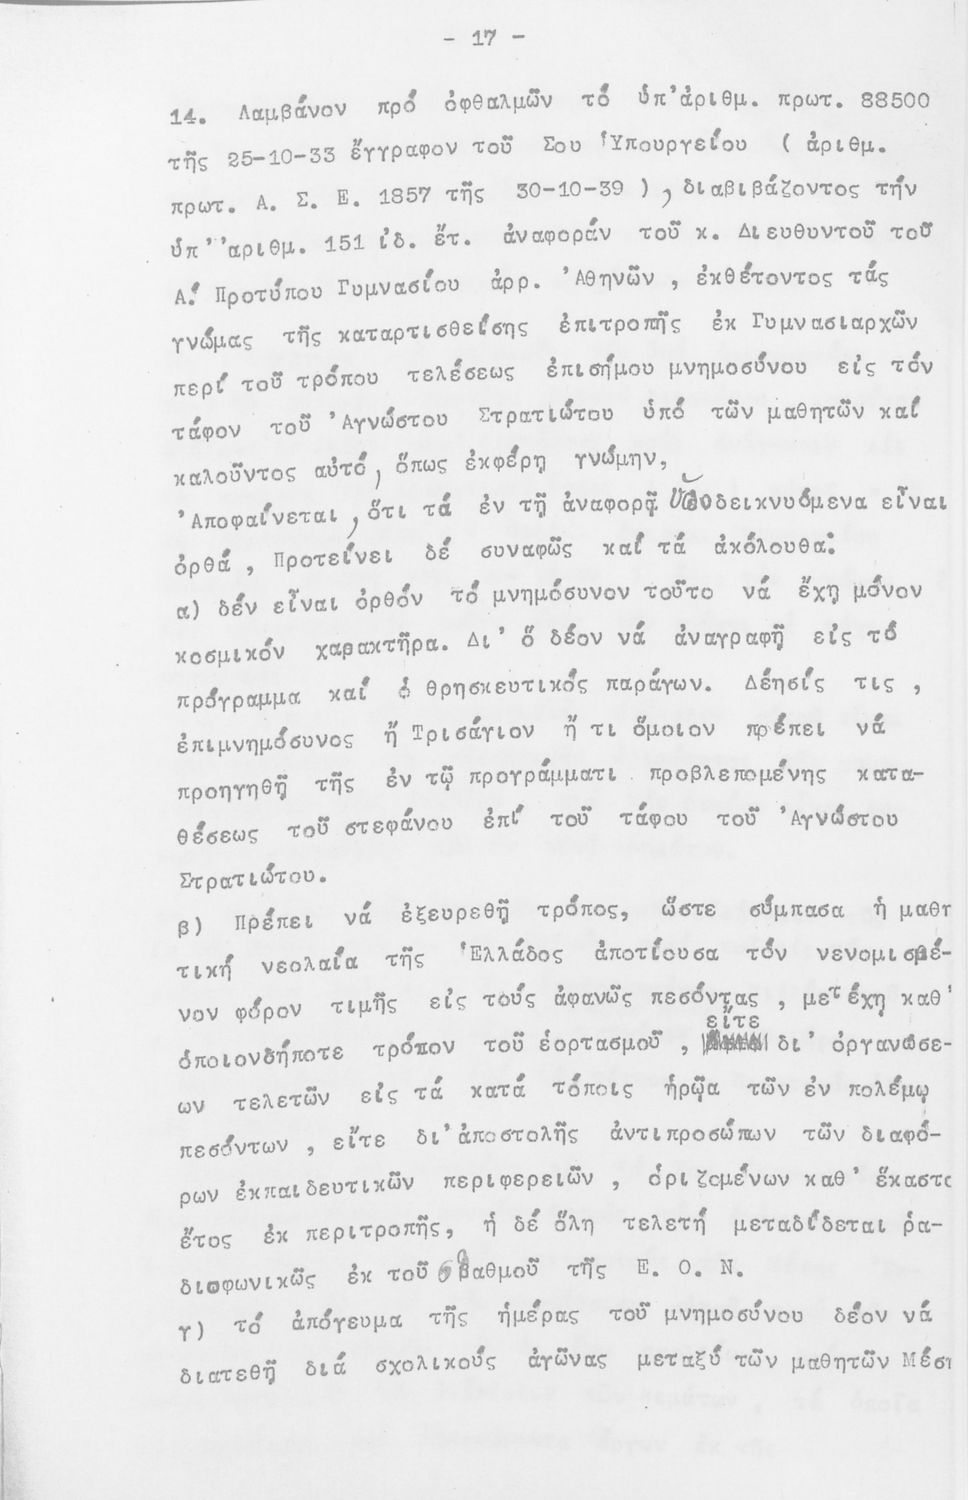 - 17 -
14. Λαμβάνον πρό ὀφθαλμῶν τό ὑπ'ἀριθμ. πρωτ. 88500
τῆς 25-10-33 ἔγγραφον τοῦ Σου Ὑπουργείου ( ἀριθμ.
πρωτ. Α. Σ. Ε. 1857 τῆς 30-10-39 ) , διαβιβάζοντος τήν
ὑπ''αριθμ. 151 ἰδ. ἔτ. ἀναφοράν τοῦ κ. Διευθυντοῦ τοῦ
Α.' Προτύπου Γυμνασίου ἀρρ. 'Αθηνῶν , ἐκθέτοντος τάς
γνώμας τῆς καταρτισθείσης ἐπιτροπῆς ἐκ Γυμνασιαρχῶν
περί τοῦ τρόπου τελέσεως ἐπισήμου μνημοσύνου εἰς τόν
τάφον τοῦ 'Αγνώστου Στρατιώτου ὑπό τῶν μαθητῶν καί
καλοῦντος αὐτό, ὅπως ἐκφέρη γνώμην,
'Αποφαίνεται , ὅτι τά ἐν τῇ ἀναφορᾷ ὑποδεικνυόμενα εἶναι
ὀρθά , Προτείνει δέ συναφῶς καί τά ἀκόλουθα:
α) δέν εἶναι ὀρθόν τό μνημόσυνον τοῦτο νά ἔχῃ μόνον
κοσμικόν χαρακτῆρα. Δι' ὅ δέον νά ἀναγραφῇ εἰς τό
πρόγραμμα καί ὁ θρησκευτικός παράγων. Δέησίς τις ,
ἐπιμνημόσυνος ἤ Τρισάγιον ἤ τι ὅμοιον πρέπει νά
προηγηθῇ τῆς ἐν τῷ προγράμματι προβλεπομένης κατα-
θέσεως τοῦ στεφάνου ἐπί τοῦ τάφου τοῦ 'Αγνώστου
Στρατιώτου.
β) Πρέπει νά ἐξευρεθῇ τρόπος, ὥστε σύμπασα ἡ μαθη
τική νεολαία τῆς Ἑλλάδος ἀποτίουσα τόν νενομισμέ-
νον φόρον τιμῆς εἰς τούς ἀφανῶς πεσόντας , μετέχῃ καθ'
ὁποιονδήποτε τρόπον τοῦ ἑορτασμοῦ , εἴτε δι' ὀργανώσε-
ων τελετῶν εἰς τά κατά τόποις ἡρῷα τῶν ἐν πολέμῳ
πεσόντων , εἴτε δι'ἀποστολῆς ἀντιπροσώπων τῶν διαφό-
ρων ἐκπαιδευτικῶν περιφερειῶν , ὁριζομένων καθ' ἕκαστο
ἔτος ἐκ περιτροπῆς, ἡ δέ ὅλη τελετή μεταδίδεται ῥα-
διοφωνικῶς ἐκ τοῦ σταθμοῦ τῆς Ε. Ο. Ν.
γ) τό ἀπόγευμα τῆς ἡμέρας τοῦ μνημοσύνου δέον νά
διατεθῇ διά σχολικούς ἀγῶνας μεταξύ τῶν μαθητῶν Μέση